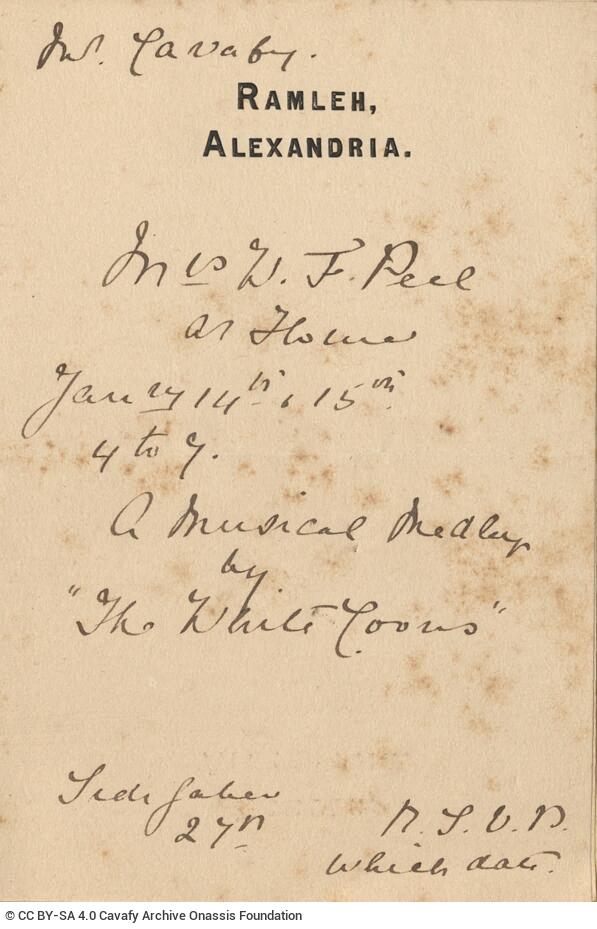 Mr. Cavafy.
RAMLEH,
ALEXANDRIA.
Mrs W. F. Peel
at Home
Janry 14th & 15th
4 to 7.
A Musical Medley
by
"The White Coons"
Sidi Gaber
27th
R.S.V.P.
which date.
© CC BY-SA 4.0 Cavafy Archive Onassis Foundation